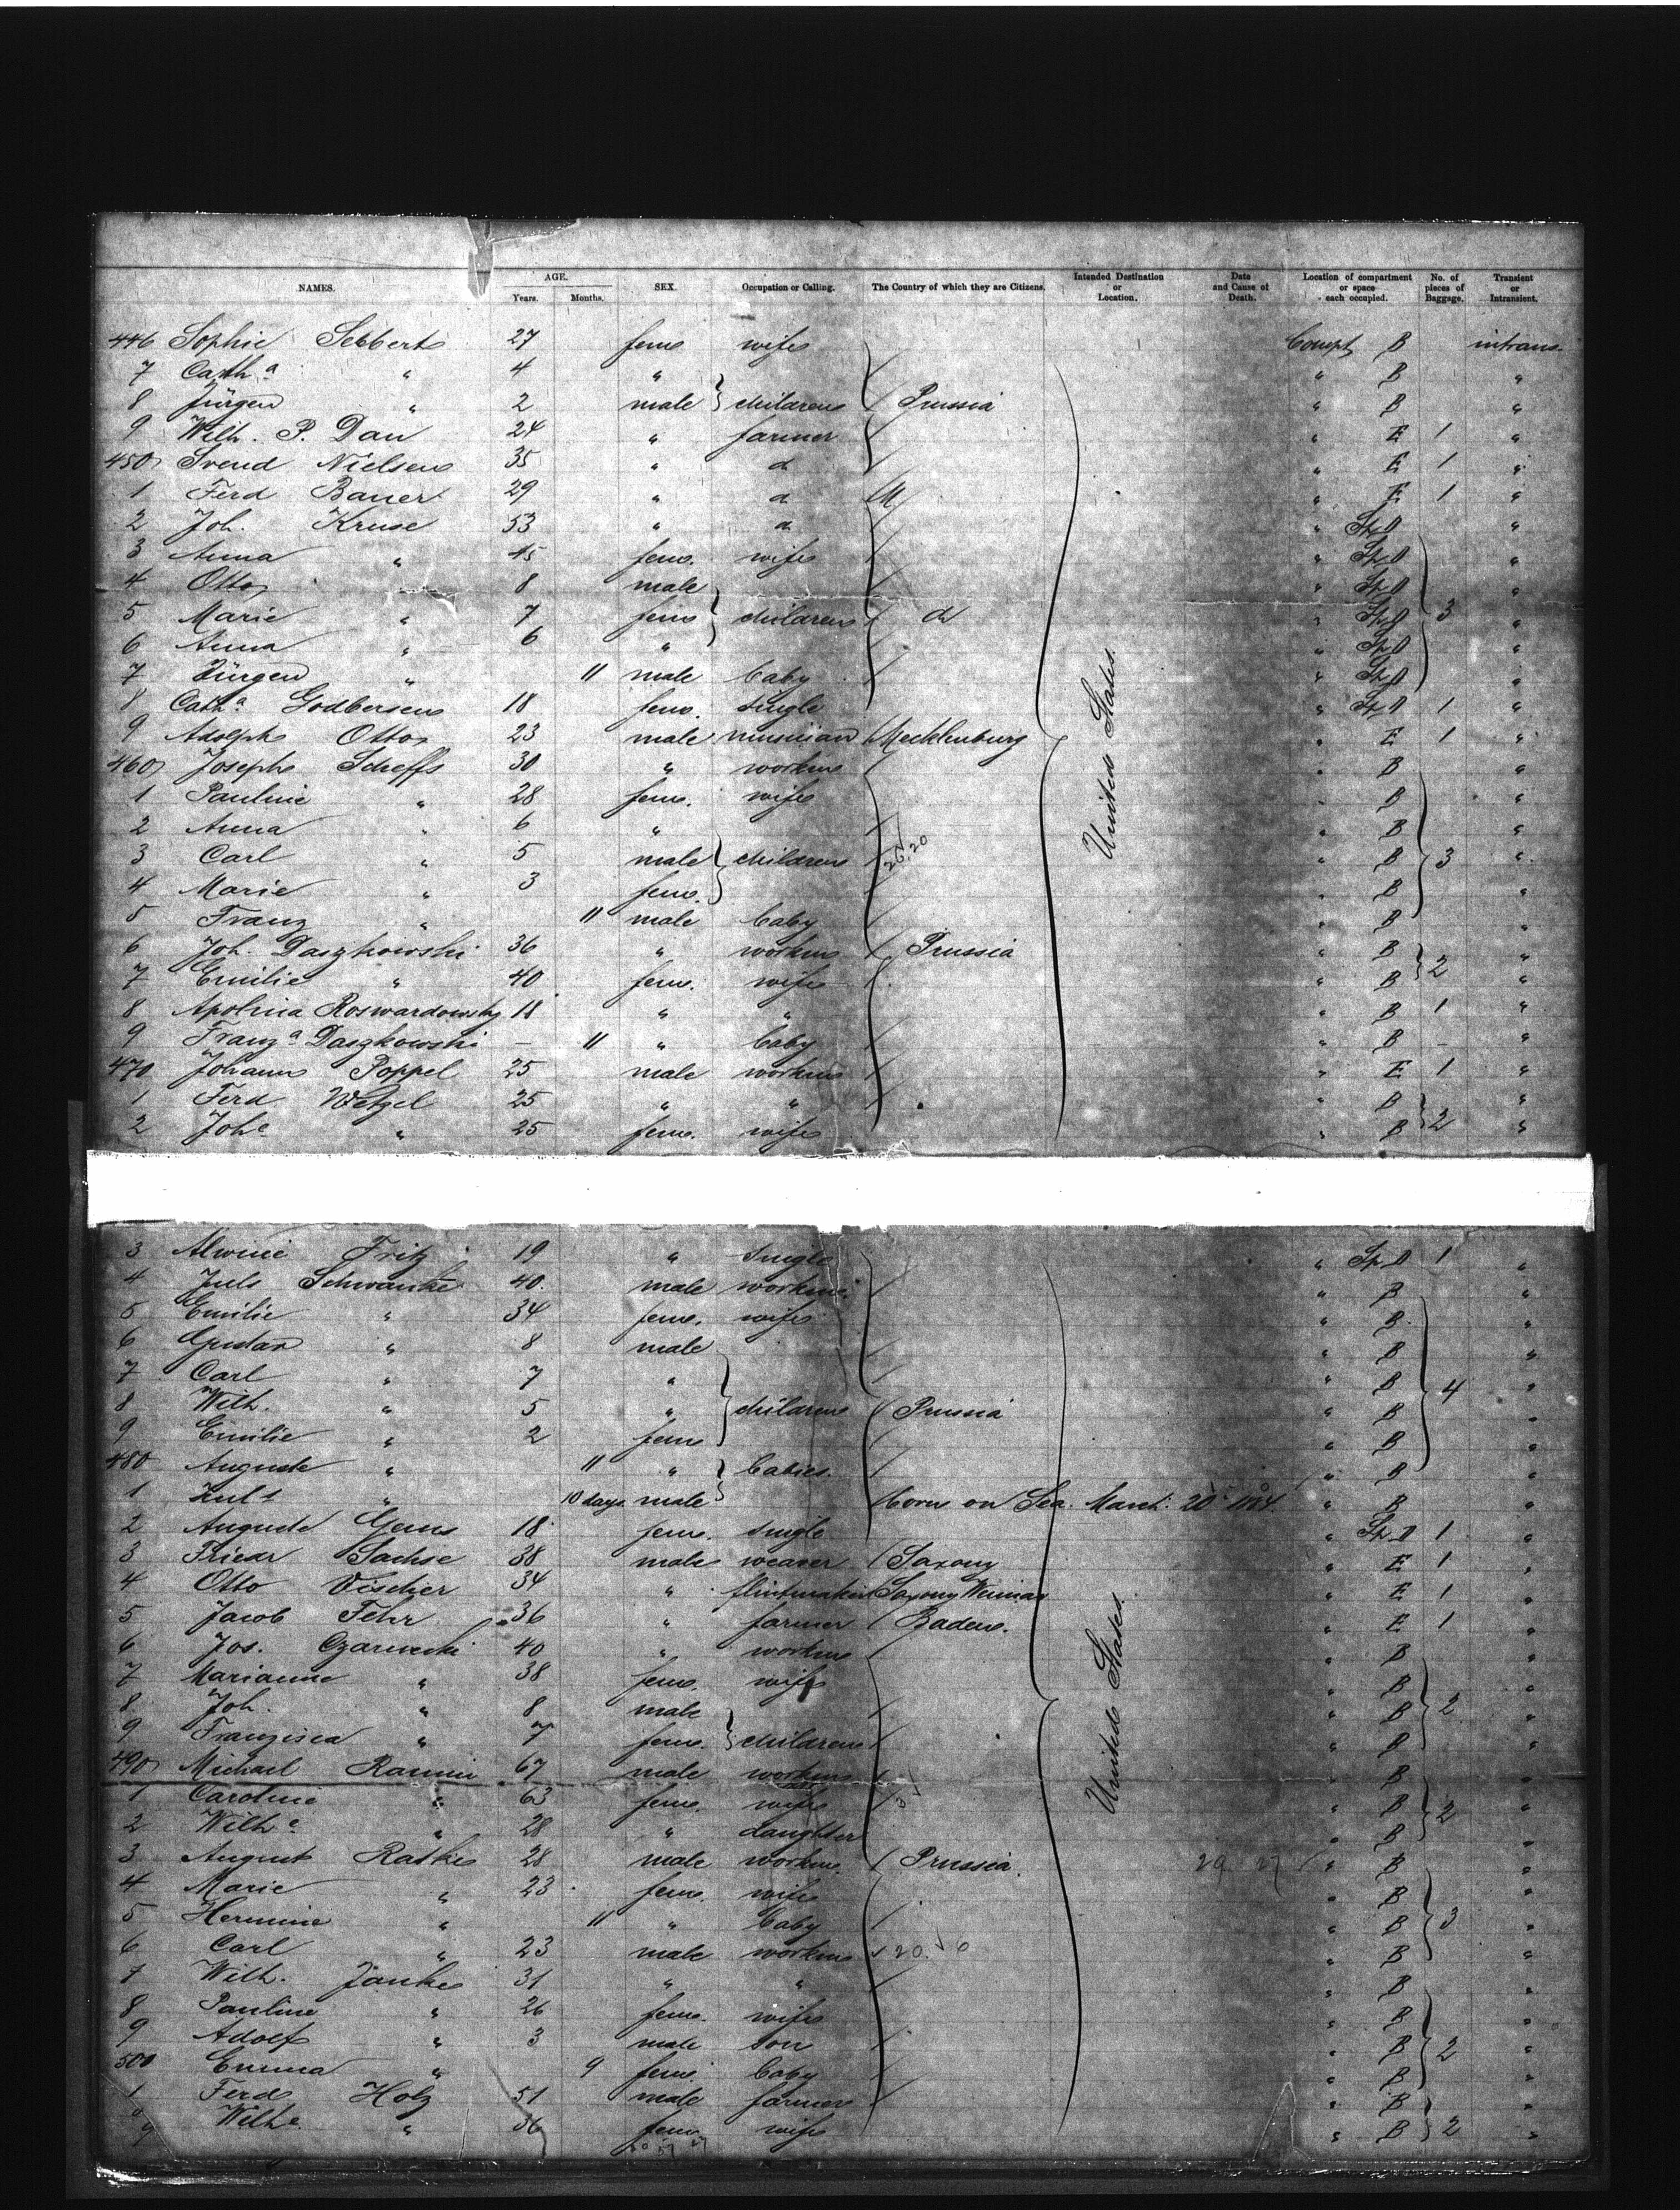 NAMES. AGE. Years. Months. SEX. Occupation or Calling. The Country of which they are Citizens. Intended Destination or Location. Date and Cause of Death. Location of compartment or space each occupied. No. of pieces of Baggage. Transient or Intransient.
446 Sophie Sebbert 27 fem. wife Compt B intrans.
7 Cath.a " 4 " " B "
8 Jürgen " 2 male } children Prussia " B "
9 Wilh. P. Dau 24 " farmer " E 1 "
450 Svend Nielsen 35 " d " E 1 "
1 Ferd Bauer 29 " d " E 1 "
2 Joh. Kruse 53 " d " "
3 Anna " 45 fem. wife " "
4 Otto " 8 male " "
5 Marie " 7 fem } children d " 3 "
6 Anna " 6 " " "
7 Jürgen " 11 male baby " "
8 Cath.a Godbersen 18 fem. single " 1 "
9 Adolph Otto 23 male musician Mecklenburg " E 1 "
460 Joseph Scheffs 30 " workm " B "
1 Pauline " 28 fem. wife " B "
2 Anna " 6 " " B "
3 Carl " 5 male } children " B 3 "
4 Marie " 3 fem. " B "
5 Franz " 11 male baby " B "
6 Joh. Daszkowski 36 " workm Prussia " B "
7 Emilie " 40 fem. wife " B 2 "
8 Apolina Roswardowsky 18 " " " B 1 "
9 Franz.a Daszkowski - 11 " baby " B - "
470 Johann Poppel 25 male workm " E 1 "
1 Ferd Wetzel 25 " " " B "
2 Joh.e " 25 fem. wife " B 2 "
United States.
3 Alwine Fritz 19 " single " 1 "
4 Juls Schwantke 40. male workm. " B "
5 Emilie " 34 fem. wife " B "
6 Gustav " 8 male " B "
7 Carl " 7 " " B 4 "
8 Wilh. " 5 " } children Prussia " B "
9 Emilie " 2 fem " B "
480 Auguste " 11 " } babies. " B "
1 Juls " 10 days male born on Sea. March. 20 1884. " B "
2 Auguste Gems 18 fem. single " 1 "
3 Friedr Sachse 38 male weaver Saxony " E 1 "
4 Otto Vischer 34 " flintmaker Saxony Weimar " E 1 "
5 Jacob Fehr 36 " farmer Baden. " E 1 "
6 Jos. Czarnecki 40 " workm " B "
7 Marianne " 38 fem. wife " B "
8 Joh. " 8 male " B 2 "
9 Franzisca " 7 fem. } children " B "
490 Michael Rammi 67 male workm " B "
1 Caroline " 63 fem. wife " B 2 "
2 Wilh.e " 28 " daughter " B "
3 August Rathke 28 male workm. Prussia. 29 27 " B "
4 Marie " 23 fem. wife " B "
5 Hermine " 11 " baby " B 3 "
6 Carl " 23 male workm " B "
7 Wilh. Janke 31 " " " B "
8 Pauline " 26 fem. wife " B "
9 Adolf " 3 male son " B 2 "
500 Emma " 9 fem. baby " B "
1 Ferd Holz 51 male farmer " B "
Wilh.e " 36 fem. wife " B 2 "
United States.